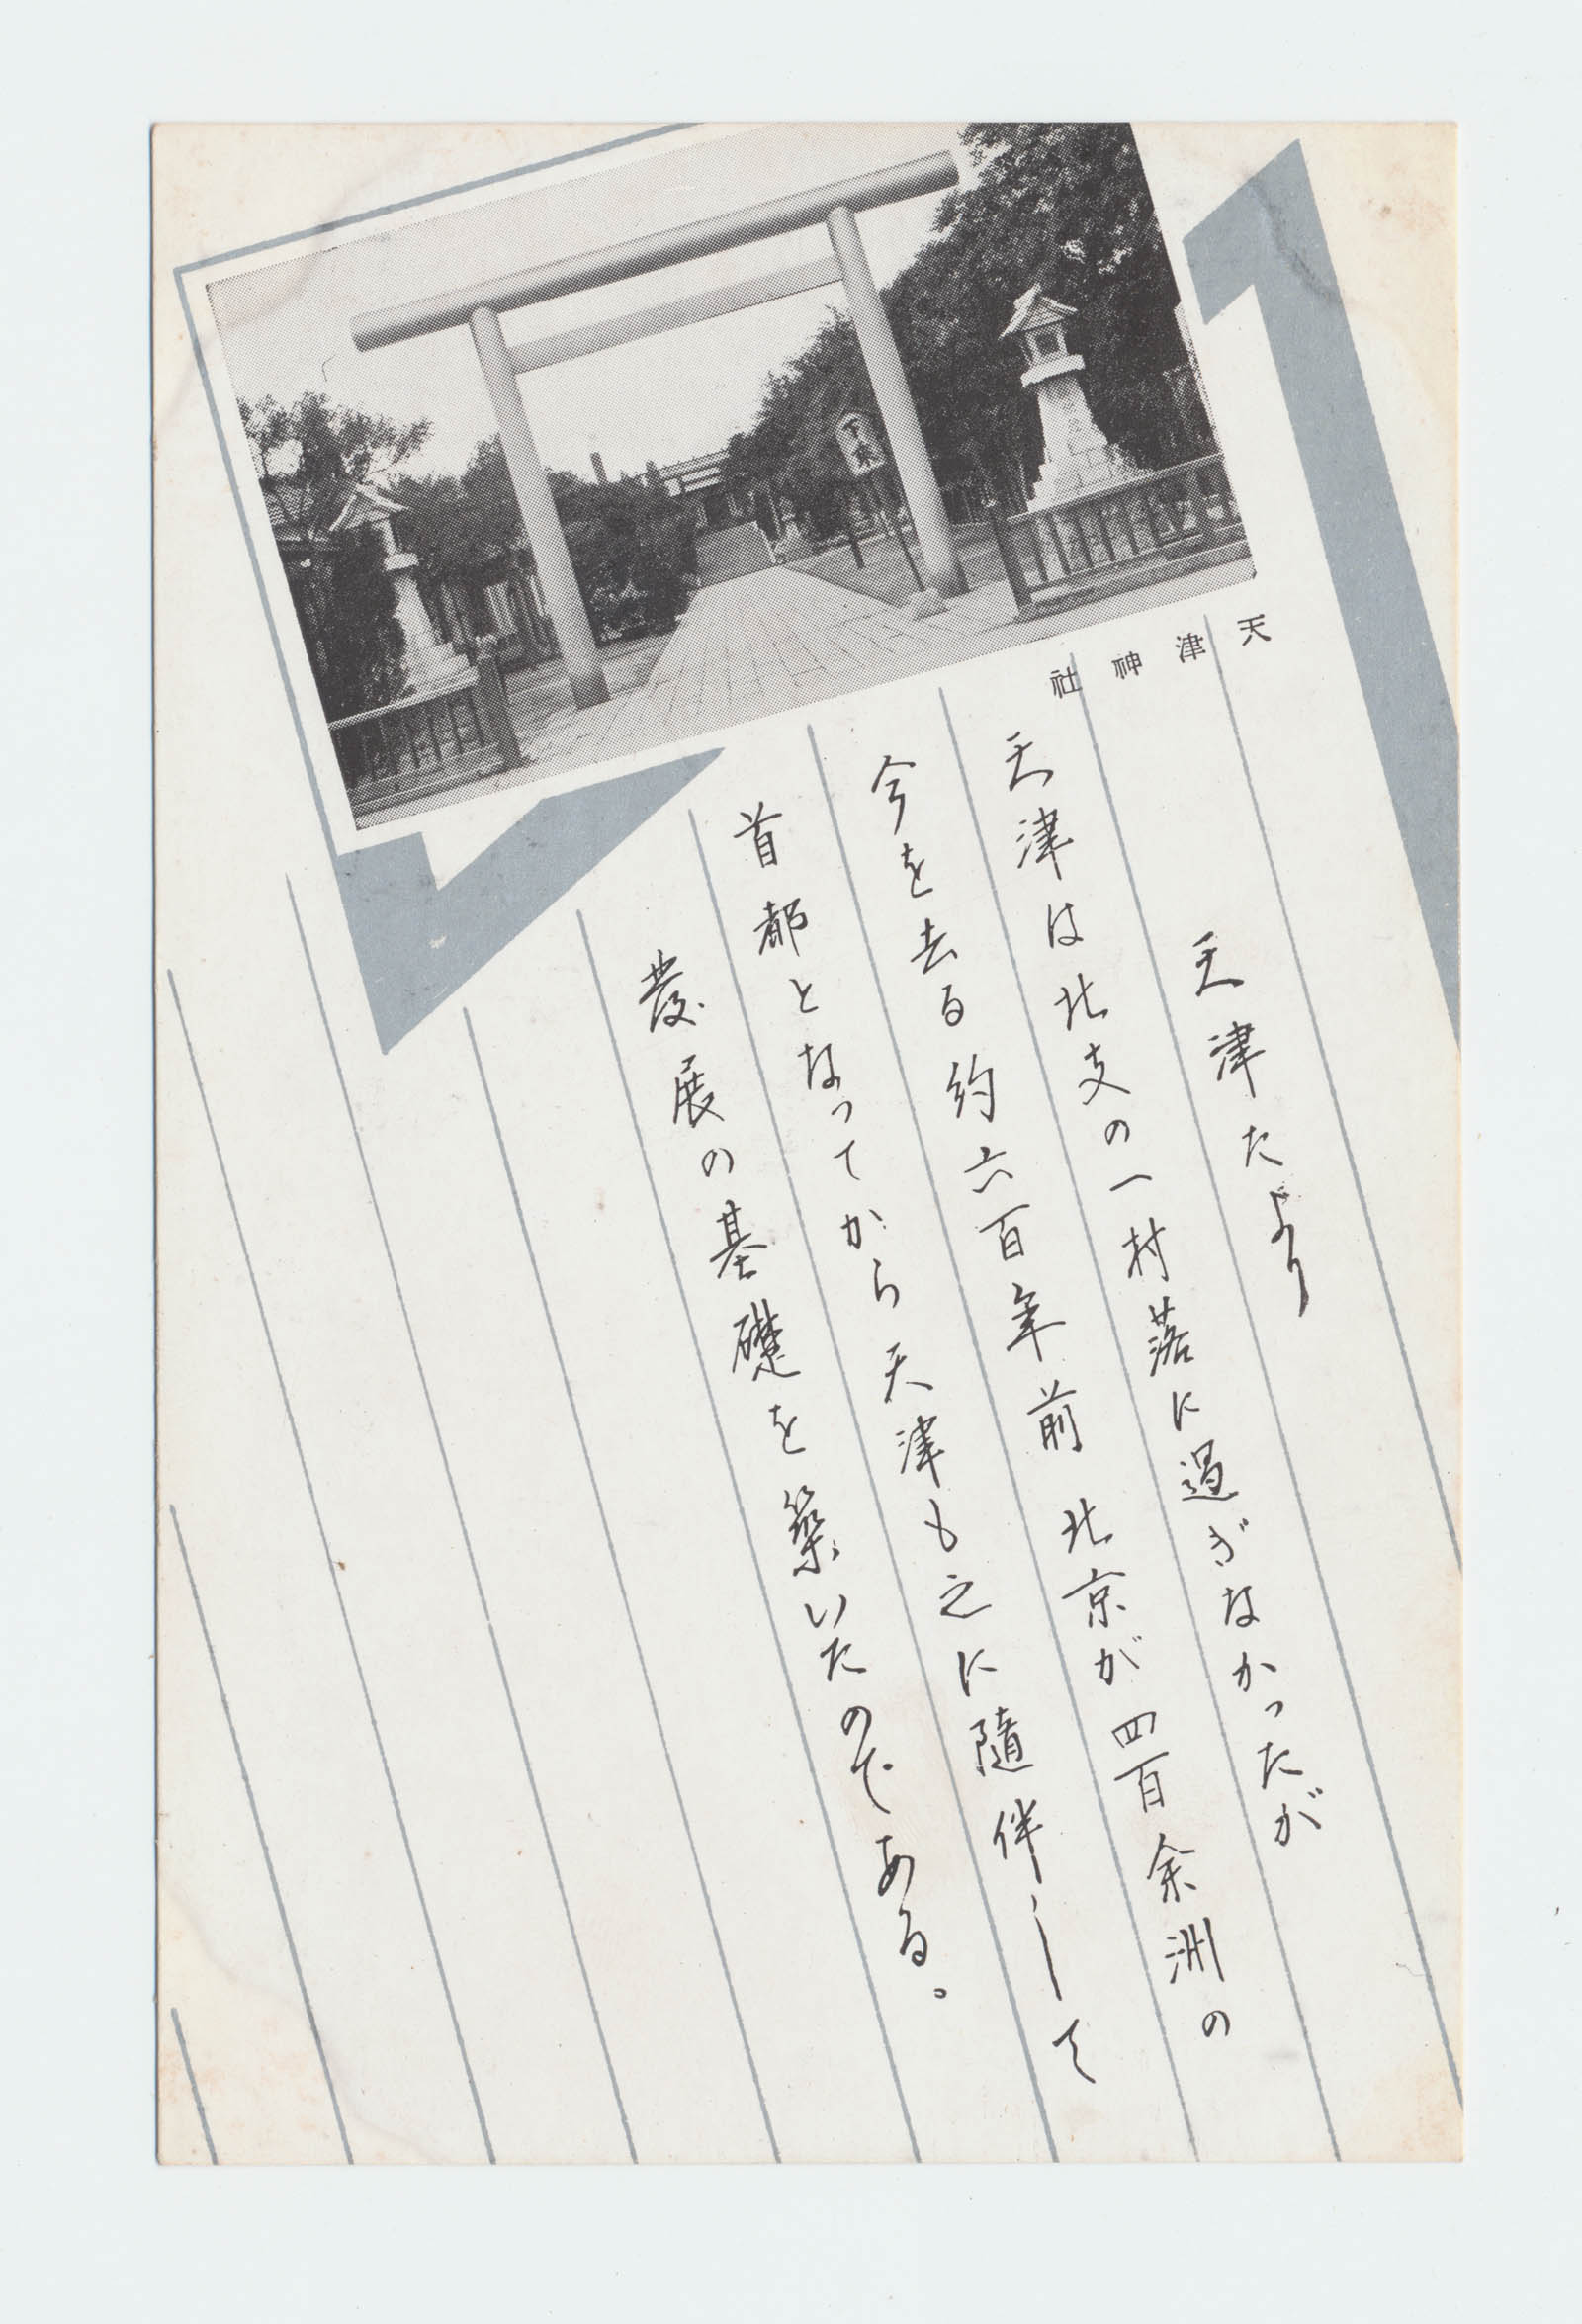 下乗
天津神社
天津たより
天津は北支の一村落に過ぎなかったが
今を去る約六百年前北京が四百余洲の
首都となってから天津も之に隨伴して
發展の基礎を築いたのである。